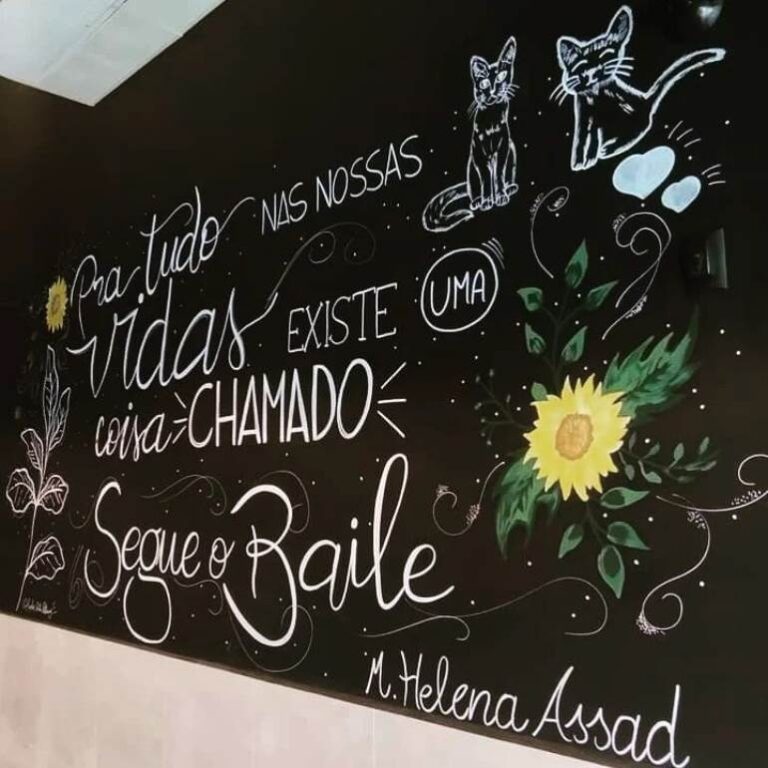 Pra tudo NAS NOSSAS
vidas EXISTE UMA
coisa CHAMADO
Segue o Baile
M. Helena Assad